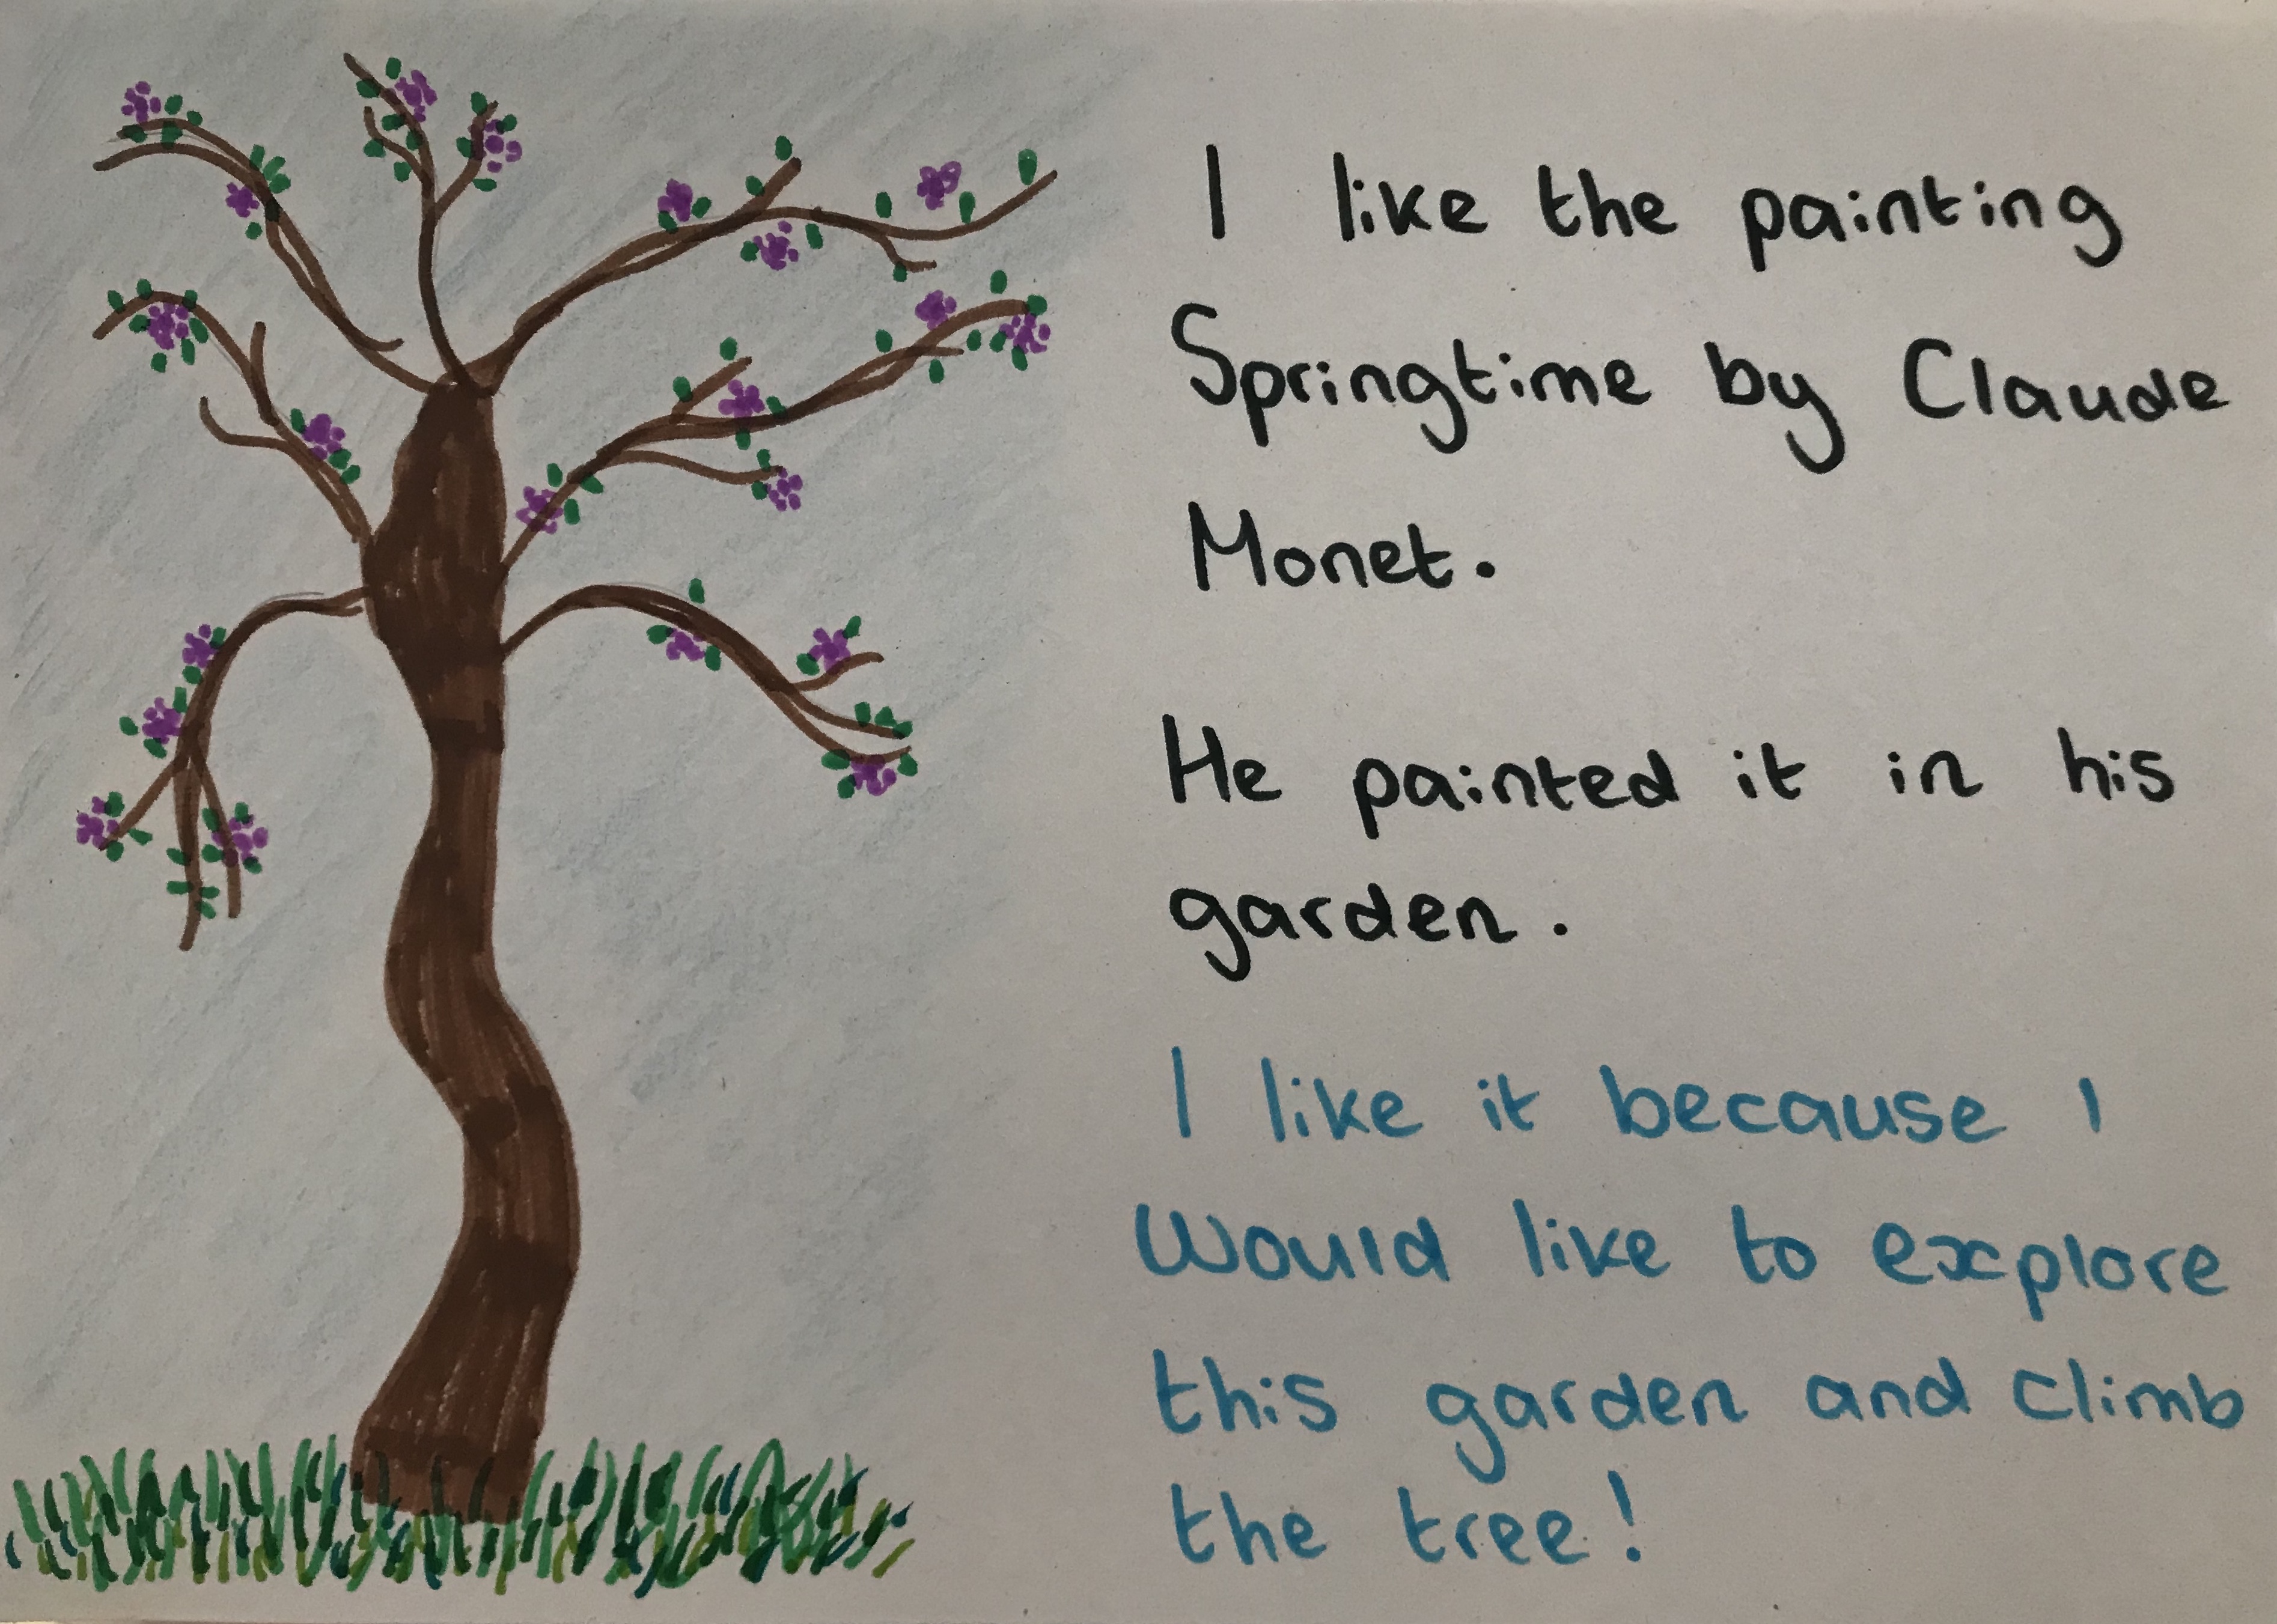 I like the painting
Springtime by Claude
Monet.
He painted it in his
garden.
I like it because I
Would like to explore
this garden and climb
the tree!